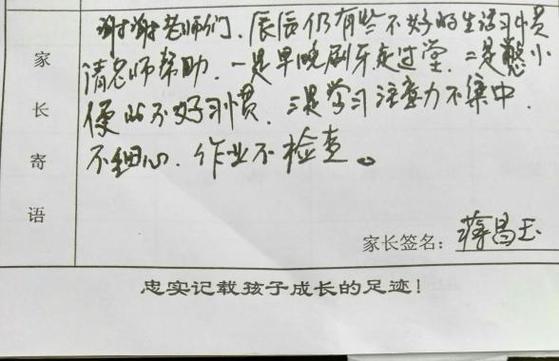 谢谢老师们、辰辰仍有些不好的生活习惯
请老师帮助、一是早晚刷牙走过堂、二是憋小
便的不好习惯、三是学习注意力不集中、
不细心、作业不检查。
家长寄语
家长签名：蒋昌玉
忠实记载孩子成长的足迹！